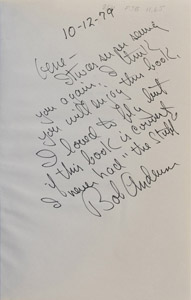 10-12-79
Gene-
It was super seeing
you again. I think
you will enjoy this book.
I loved to fly but
if this book is correct
I never had "the Stuff"
Bob Andrews